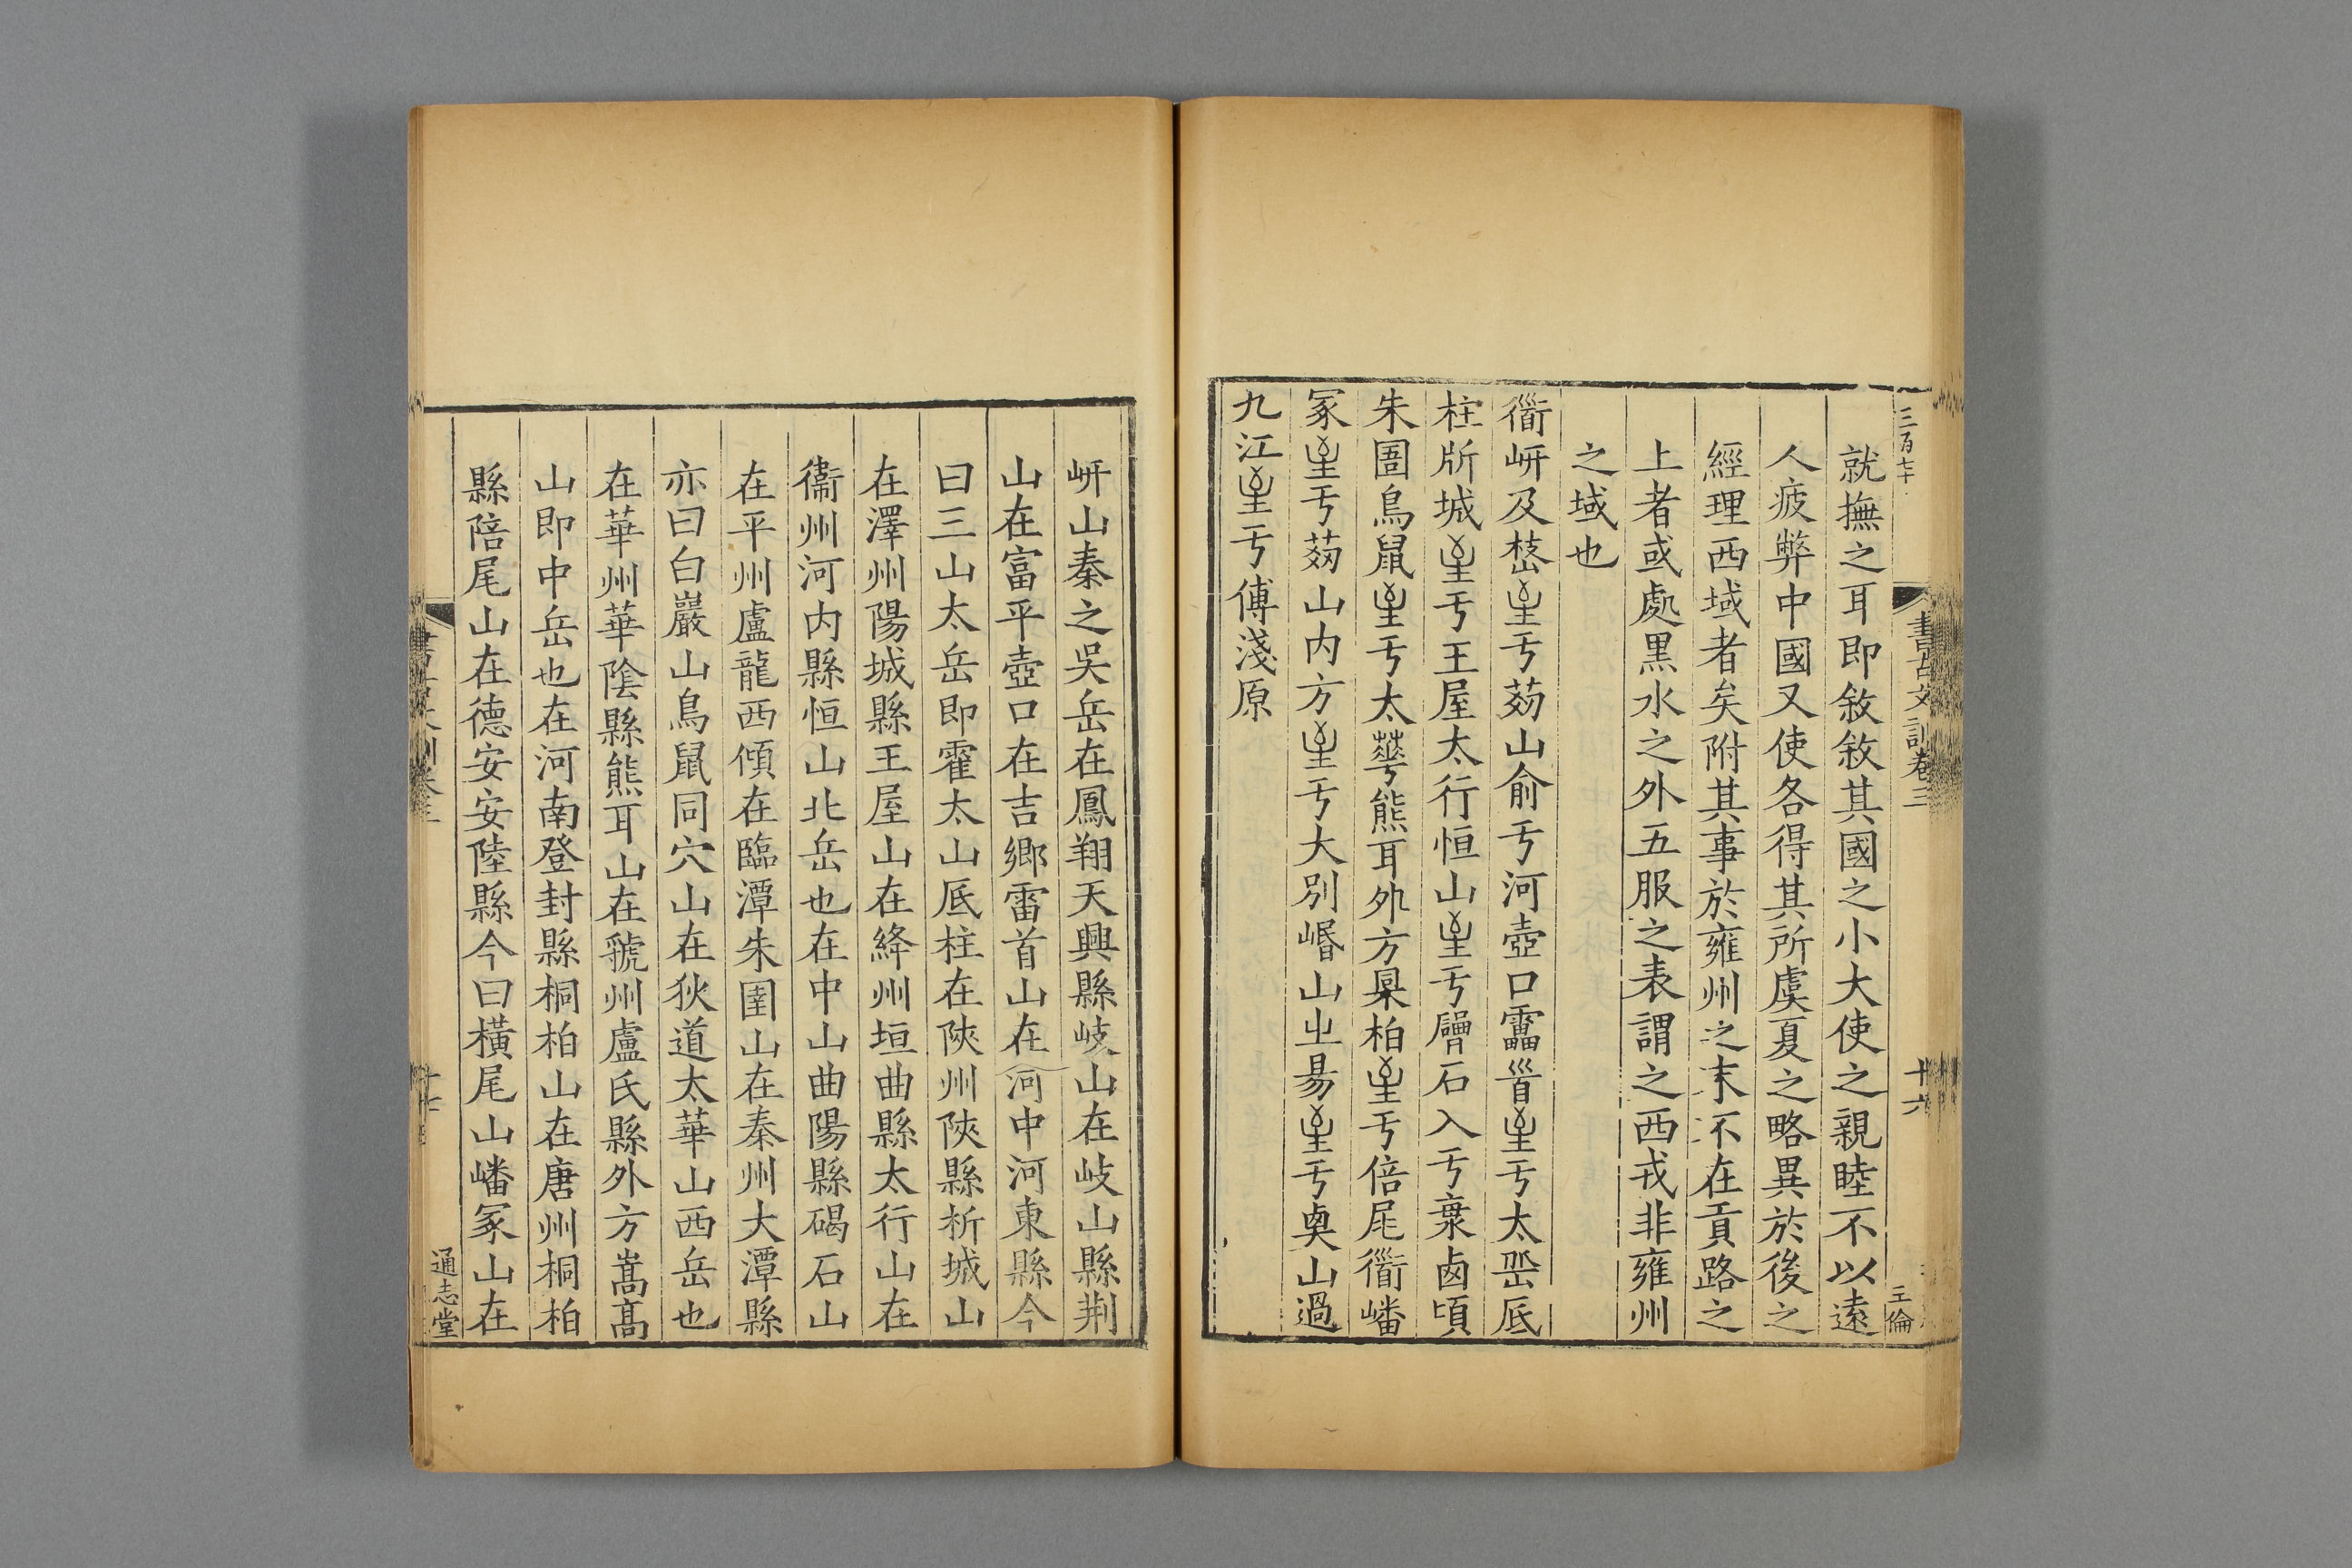 三百七十
書古文訓卷三
十六
王倫
就撫之耳即敘敘其國之小大使之親睦不以遠
人疲弊中國又使各得其所虞夏之略異於後之
經理西域者矣附其事於雍州之末不在貢路之
上者或處黑水之外五服之表謂之西戎非雍州
之域也
𧗸岍及𣒅𡉉亐䓻山俞亐河壺口靁𩠐𡉉亐太𡶳厎
柱𣂔城𡉉亐王屋太行恒山𡉉亐𥗉石入亐𣶃卤頃
朱圄鳥鼠𡉉亐太華熊耳外方𣓤柏𡉉亐倍尾𧗸嶓
冢𡉉亐䓻山内方𡉉亐大別㟭山㞢昜𡉉亐奠山過
九江𡉉亐傅淺原
岍山秦之吳岳在鳳翔天興縣岐山在岐山縣荆
山在富平壺口在吉鄉雷首山在河中河東縣今
曰三山太岳即霍太山厎柱在陜州陜縣析城山
在澤州陽城縣王屋山在絳州垣曲縣太行山在
衞州河内縣恒山北岳也在中山曲陽縣碣石山
在平州盧龍西傾在臨潭朱圉山在秦州大潭縣
亦曰白巖山鳥鼠同穴山在狄道太華山西岳也
在華州華陰縣熊耳山在虢州盧氏縣外方嵩高
山即中岳也在河南登封縣桐柏山在唐州桐柏
縣陪尾山在德安安陸縣今曰橫尾山嶓冢山在
通志堂